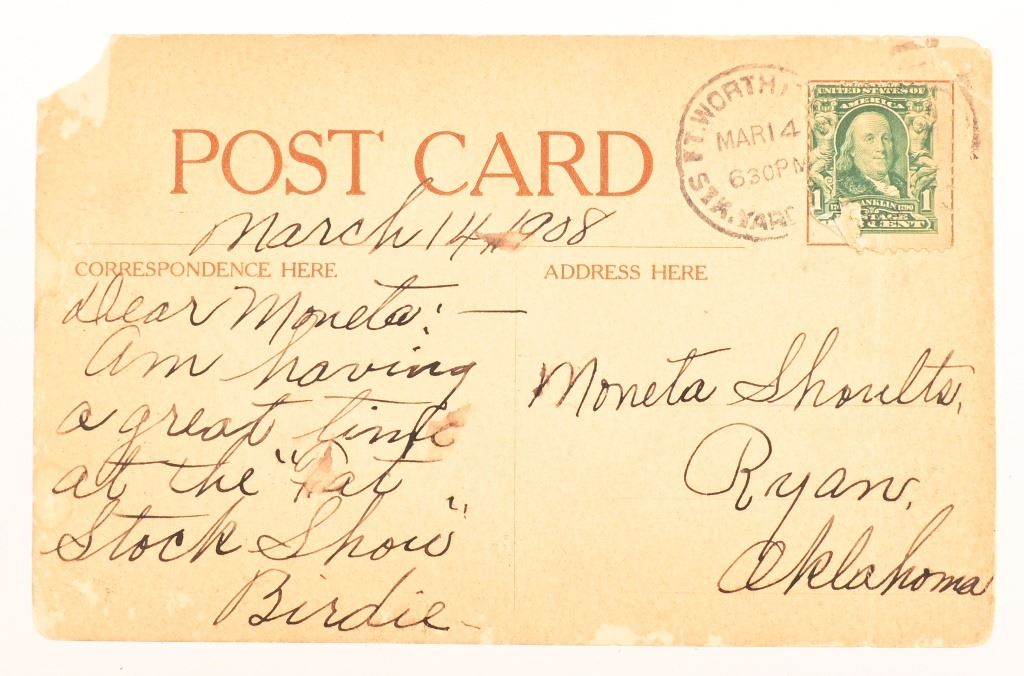 POST CARD
FT. WORTH
MAR 14
630 PM
STK. YARD
UNITED STATES OF
AMERICA
1 FRANKLIN 1790 1
March 14, 1908
CORRESPONDENCE HERE
ADDRESS HERE
Dear Moneta: —
Am having
a great time
at the "Fat
Stock Show".
Birdie
Moneta Shoults,
Ryan,
Oklahoma